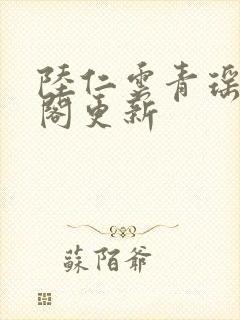 陸仁雲青瑶
閣更新
蘇陌爺